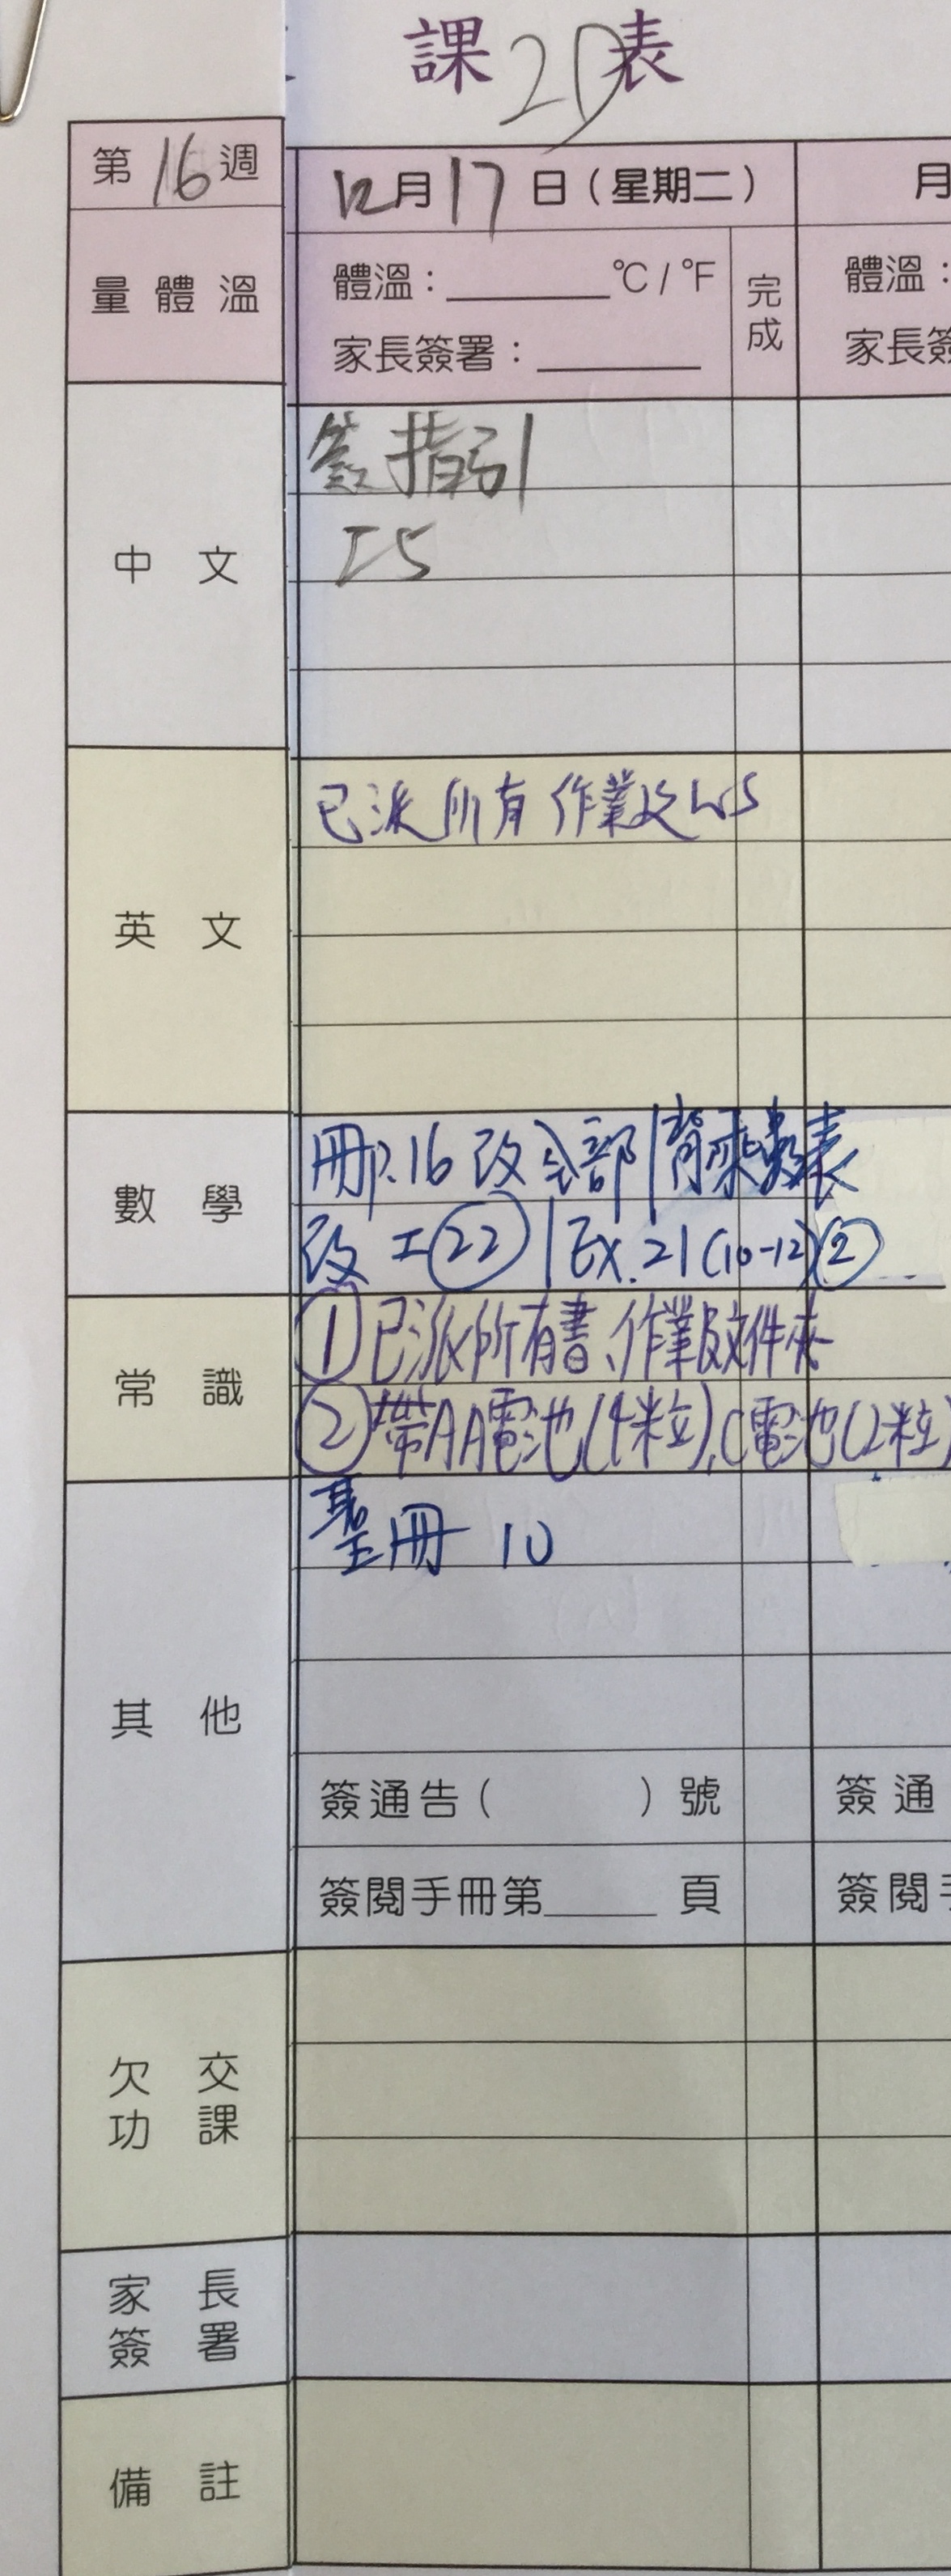 課 2D 表
第16週
12月17日（星期二）
月
量體溫
體溫：______°C / °F
完成
體溫：
家長簽署：______
家長簽
中文
簽指引
工5
英文
已派所有作業及WS
數學
冊P.16 改全部 | 背乘數表
改工㉒ | Ex.21(10-12)②
常識
①已派所有書、作業及文件夾
②帶AA電池(4粒),C電池(2粒)
其他
聖冊 10
簽通告（　　　）號
簽通
簽閱手冊第____頁
簽閱手
欠交功課
家長簽署
備註